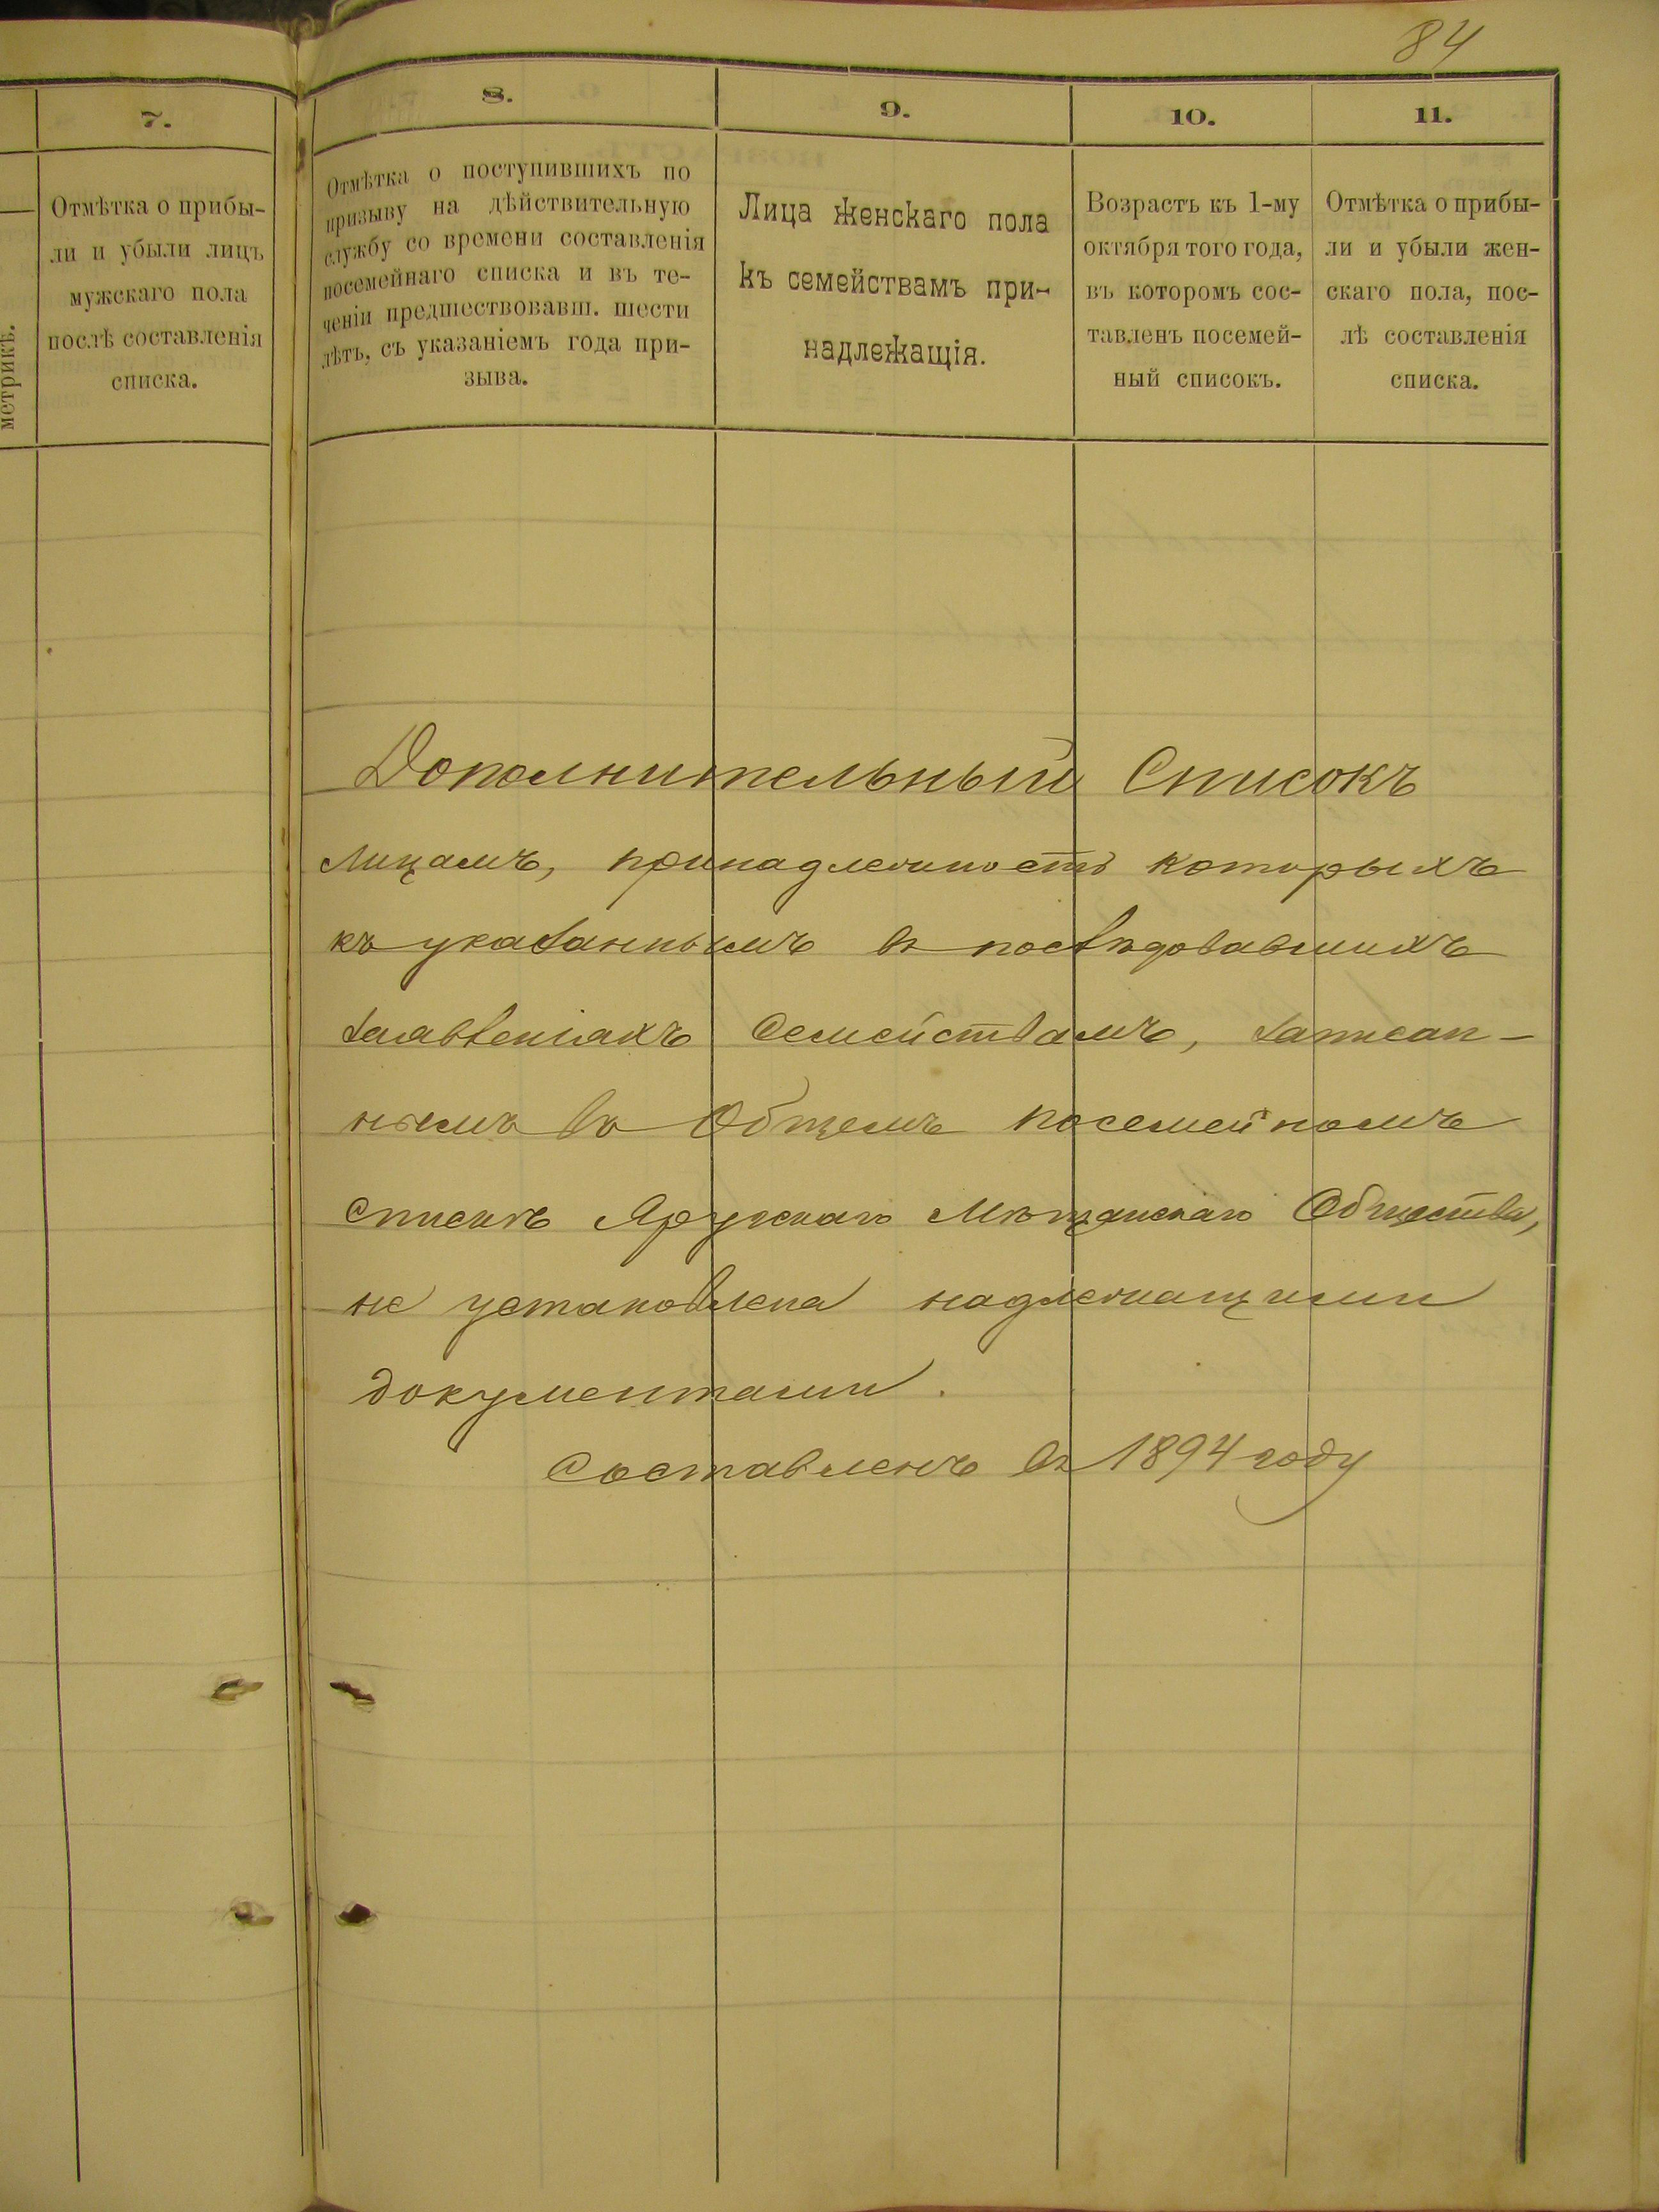 84
7.
Отмѣтка о прибы-
ли и убыли лицъ
мужскаго пола
послѣ составленія
списка.
метрикѣ.
8.
Отмѣтка о поступившихъ по
призыву на дѣйствительную
службу со времени составленія
посемейнаго списка и въ те-
ченіи предшествовавш. шести
лѣтъ, съ указаніемъ года при-
зыва.
9.
Лица женскаго пола
къ семействамъ при-
надлежащія.
10.
Возрастъ къ 1-му
октября того года,
въ которомъ сос-
тавленъ посемей-
ный списокъ.
11.
Отмѣтка о прибы-
ли и убыли жен-
скаго пола, пос-
лѣ составленія
списка.
Дополнительный Списокъ
лицамъ, принадлежность которыхъ
къ указаннымъ въ послѣдовавшихъ
заявленіяхъ семействамъ, записан-
нымъ въ Общемъ посемейномъ
спискѣ Яружскаго Мѣщанскаго Общества,
не установлена надлежащими
документами.
Составленъ въ 1894 году